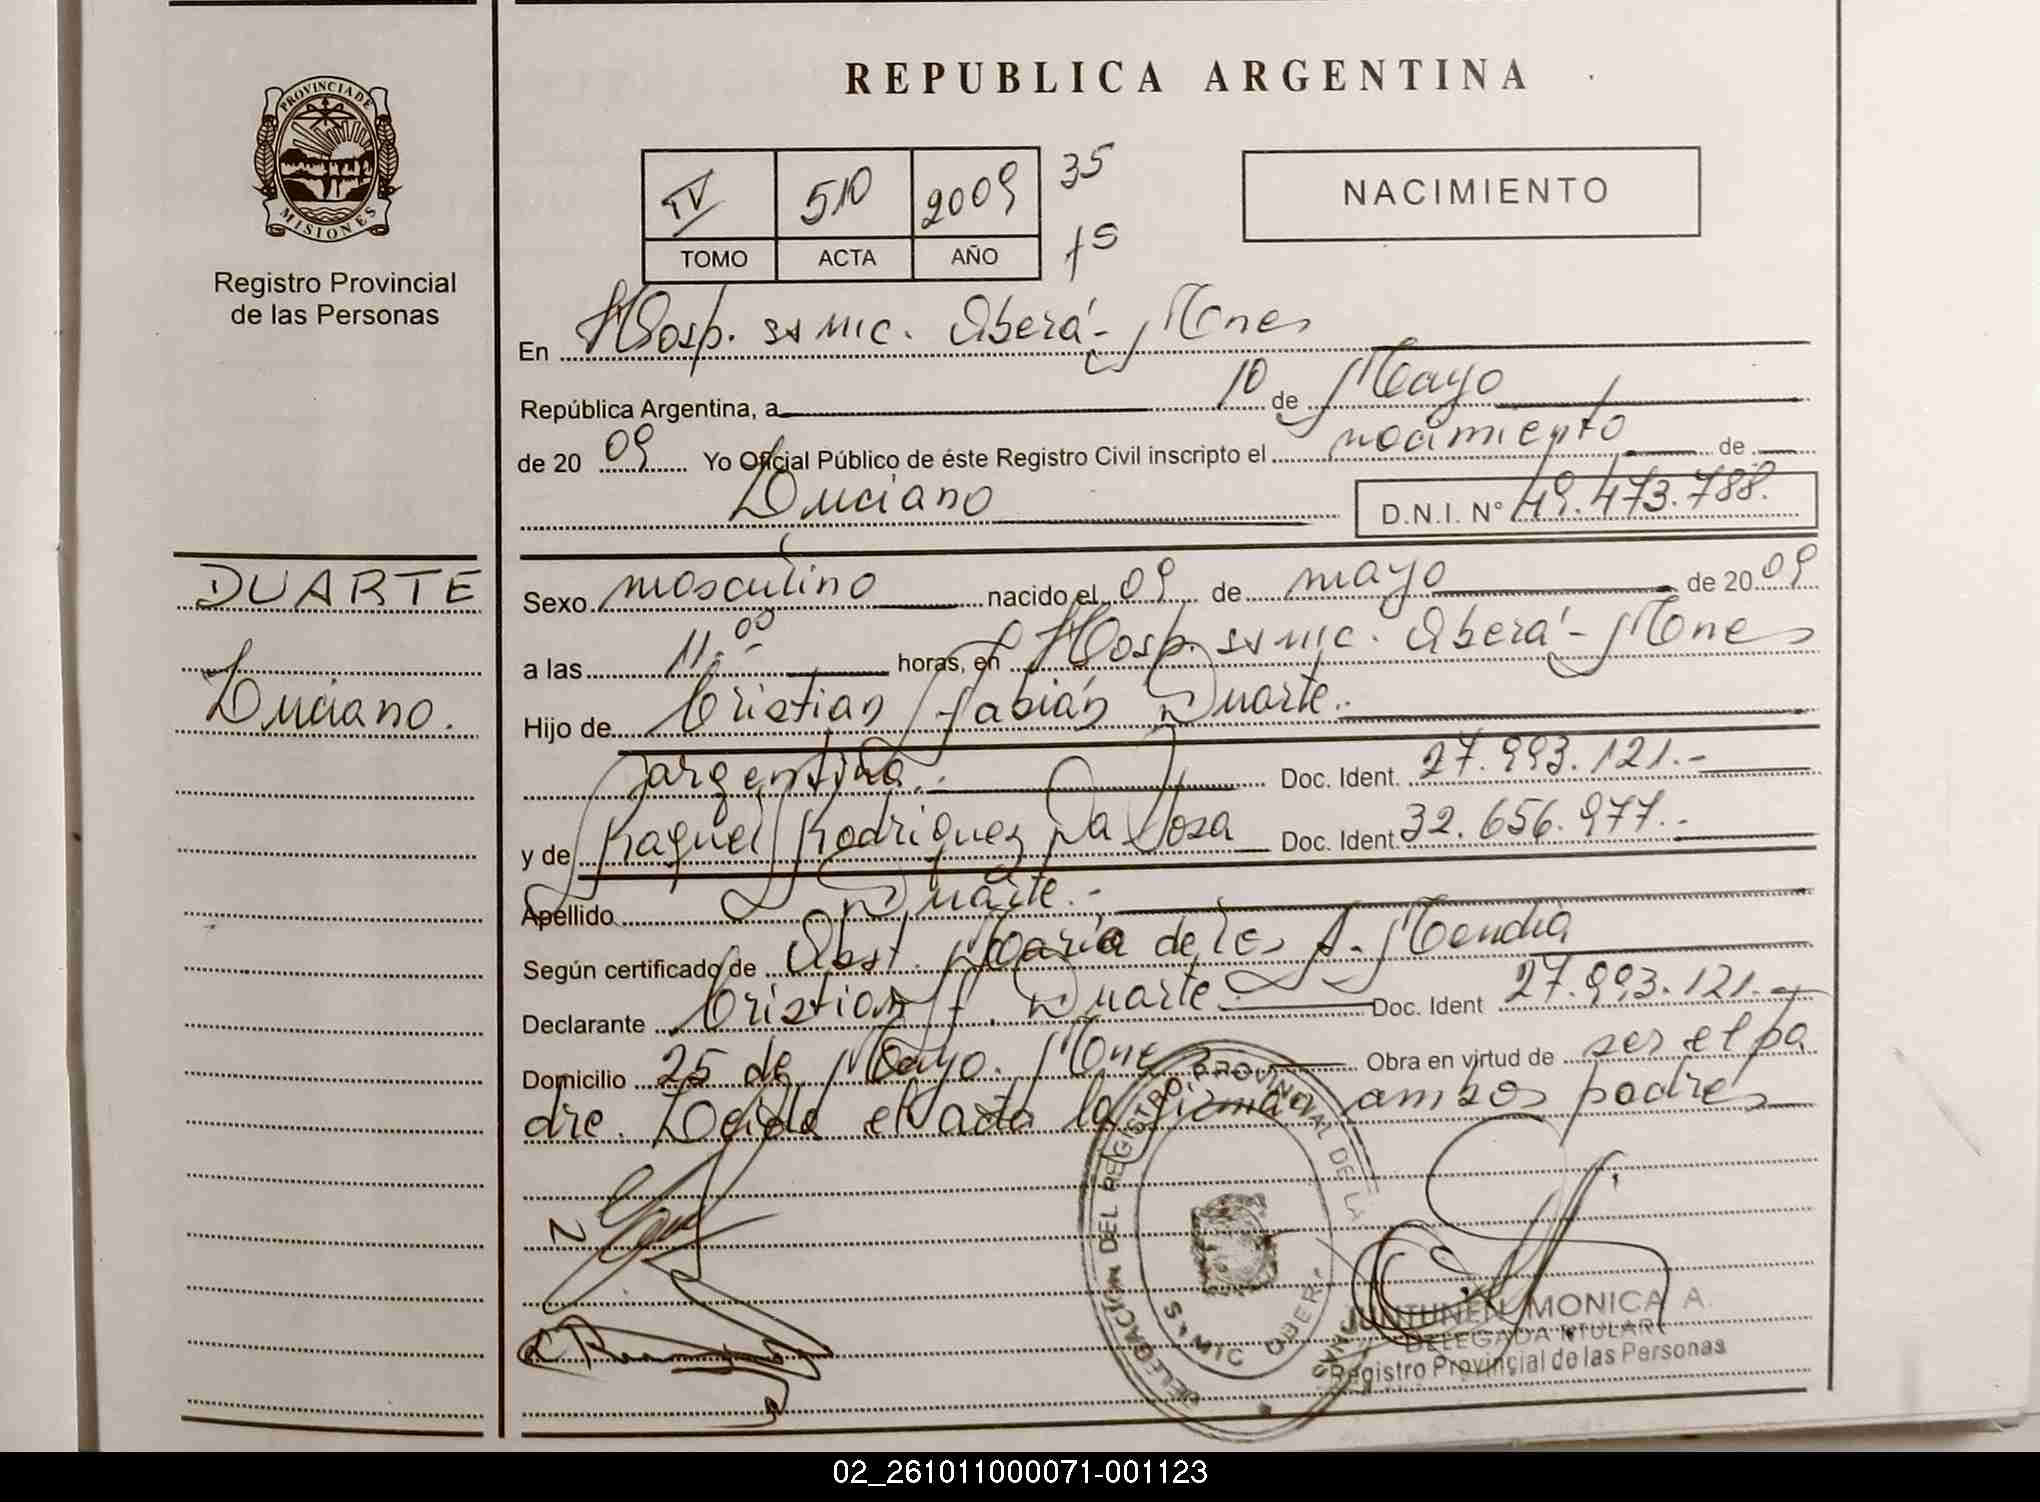 REPUBLICA ARGENTINA
PROVINCIA DE
MISIONES
Registro Provincial
de las Personas
IV 510 2009 35
TOMO ACTA AÑO 15
NACIMIENTO
En Hosp. ss mic. Oberá - Mnes
República Argentina, a 10 de Mayo
de 20 09 Yo Oficial Público de éste Registro Civil inscripto el nacimiento de
Luciano D.N.I. N° 49.473.788.
DUARTE
Luciano.
Sexo masculino nacido el 09 de mayo de 20 09
a las 11.00 horas, en Hosp. ss mic. Oberá - Mnes
Hijo de Cristian Fabián Duarte.-
argentina.- Doc. Ident. 27.993.121.-
y de Raquel Rodriguez Da Rosa Doc. Ident. 32.656.977.-
Apellido Duarte.-
Según certificado de Obst. María de les A. Mendia
Declarante Cristian F. Duarte Doc. Ident 27.993.121.-
Domicilio 25 de Mayo. Mnes Obra en virtud de ser el pa
dre. Leida el acta la firman ambos padres
DELEGACION DEL REGISTRO PROVINCIAL DE LA
JUNTUNEN MONICA A.
DELEGADA TITULAR
Registro Provincial de las Personas
02_261011000071-001123